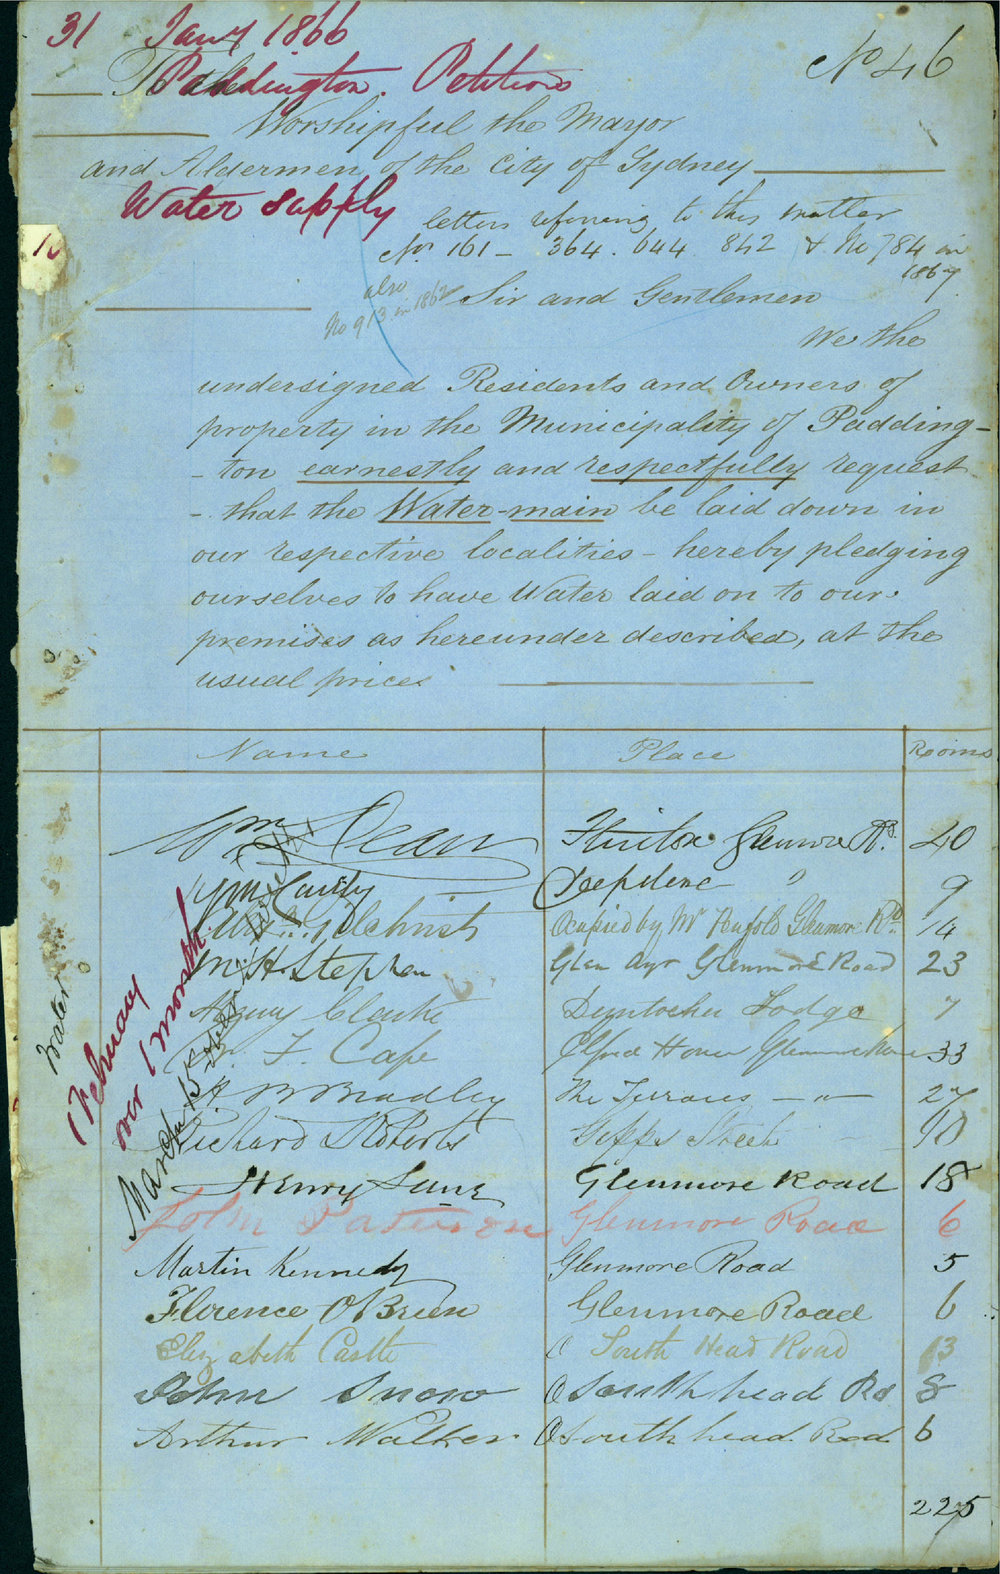 31 Jany 1866
No 46
To the
Paddington Petition
Worshipful the Mayor
and Aldermen of the City of Sydney
Water Supply
letters referring to this matter
Nos 161 - 364. 644 842 & No 784 in
1867
also
No 913 in 1862
Sir and Gentlemen
We the
undersigned Residents and Owners of
property in the Municipality of Padding-
-ton earnestly and respectfully request
- that the Water-main be laid down in
our respective localities - hereby pledging
ourselves to have Water laid on to our
premises as hereunder described, at the
usual prices
Name Place Rooms
Wm Dean Glenmore Rd. 40
Wm Deepdene " 9
Gilchrist Occupied by Mr Glenmore Rd 14
M. H. Stephen Glen Ayr Glenmore Road 23
Henry Clarke Lodge 7
F. Cape House Glenmore 33
H B Bradley The Terraces - " - 27
Richard Roberts Gipps Street 10
Henry Glenmore Road 18
John Paterson Glenmore Road 6
Martin Kennedy Glenmore Road 5
Florence O'Brien Glenmore Road 6
Elizabeth Castle O South Head Road 13
John Snow O South head Rd 8
Arthur Walker O South head Road 6
225
Water
1 February
over 1 month
March 15